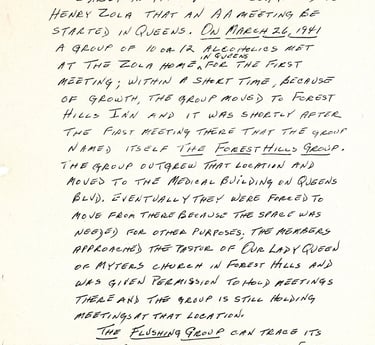 HENRY ZOLA THAT AN AA MEETING BE
STARTED IN QUEENS. ON MARCH 26, 1941
A GROUP OF 10 OR 12 ALCOHOLICS MET
AT THE ZOLA HOME IN QUEENS FOR THE FIRST
MEETING; WITHIN A SHORT TIME, BECAUSE
OF GROWTH, THE GROUP MOVED TO FOREST
HILLS INN AND IT WAS SHORTLY AFTER
THE FIRST MEETING THERE THAT THE GROUP
NAMED ITSELF THE FOREST HILLS GROUP.
THE GROUP OUTGREW THAT LOCATION AND
MOVED TO THE MEDICAL BUILDING ON QUEENS
BLVD. EVENTUALLY THEY WERE FORCED TO
MOVE FROM THERE BECAUSE THE SPACE WAS
NEEDED FOR OTHER PURPOSES. THE MEMBERS
APPROACHED THE PASTOR OF OUR LADY QUEEN
OF MYTERS CHURCH IN FOREST HILLS AND
WAS GIVEN PERMISSION TO HOLD MEETINGS
THERE AND THE GROUP IS STILL HOLDING
MEETINGS AT THAT LOCATION.
THE FLUSHING GROUP CAN TRACE ITS